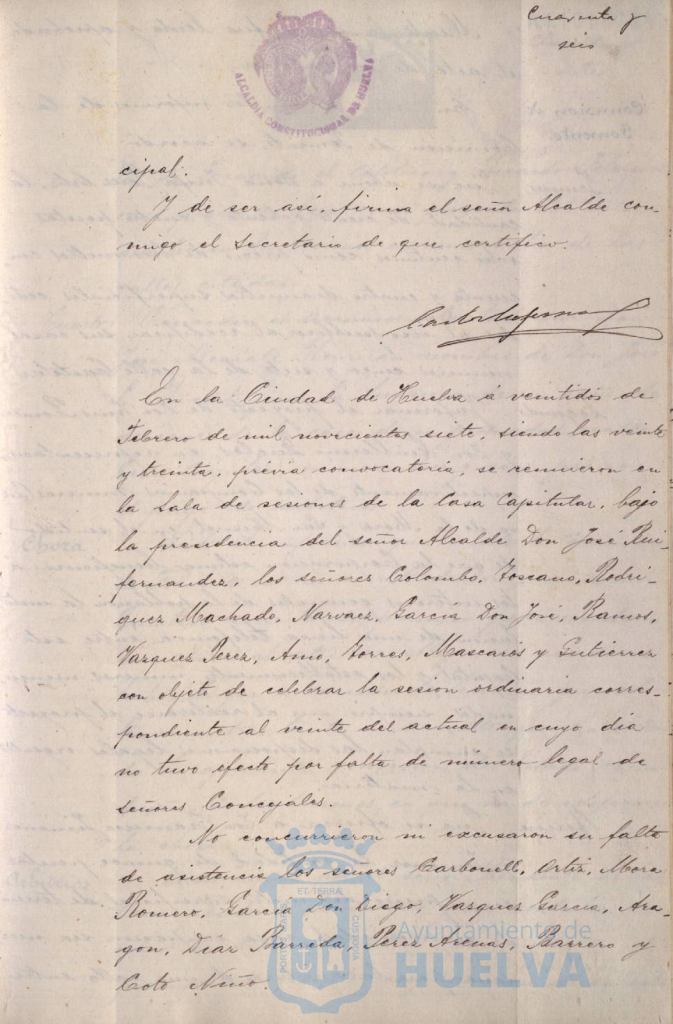 Cuarenta y
seis
ALCALDIA CONSTITUCIONAL DE HUELVA
cipal.
Y de ser así, firma el señor Alcalde con-
migo el Secretario de que certifico.
En la Ciudad de Huelva á veintidos de
Febrero de mil novecientos siete, siendo las veinte
y treinta, prévia convocatoria, se reunieron en
la Sala de sesiones de la Casa Capitular, bajo
la presidencia del señor Alcalde Don José Rui-
fernandez, los señores Colombo, Toscano, Rodri-
guez Machado, Narvaez, García Don José, Ramos,
Vazquez Perez, Amo, Torres, Mascarós y Gutiérrez
con objeto de celebrar la sesion ordinaria corres-
pondiente al veinte del actual en cuyo dia
no tuvo efecto por falta de número legal de
señores Concejales.
No concurrieron ni excusaron su falta
de asistencia los señores Carbonell, Ortiz, Mora
Romero, García Don Diego, Vazquez García, Ara-
gon, Diaz Barreda, Perez Arenas, Barrero y
Coto Niño.
PORTUS MARIS ET TERRAE CUSTODIA
Ayuntamiento de
HUELVA